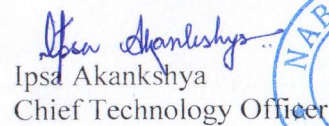 Ipsa Akankshya
Ipsa Akankshya
Chief Technology Officer
NAB